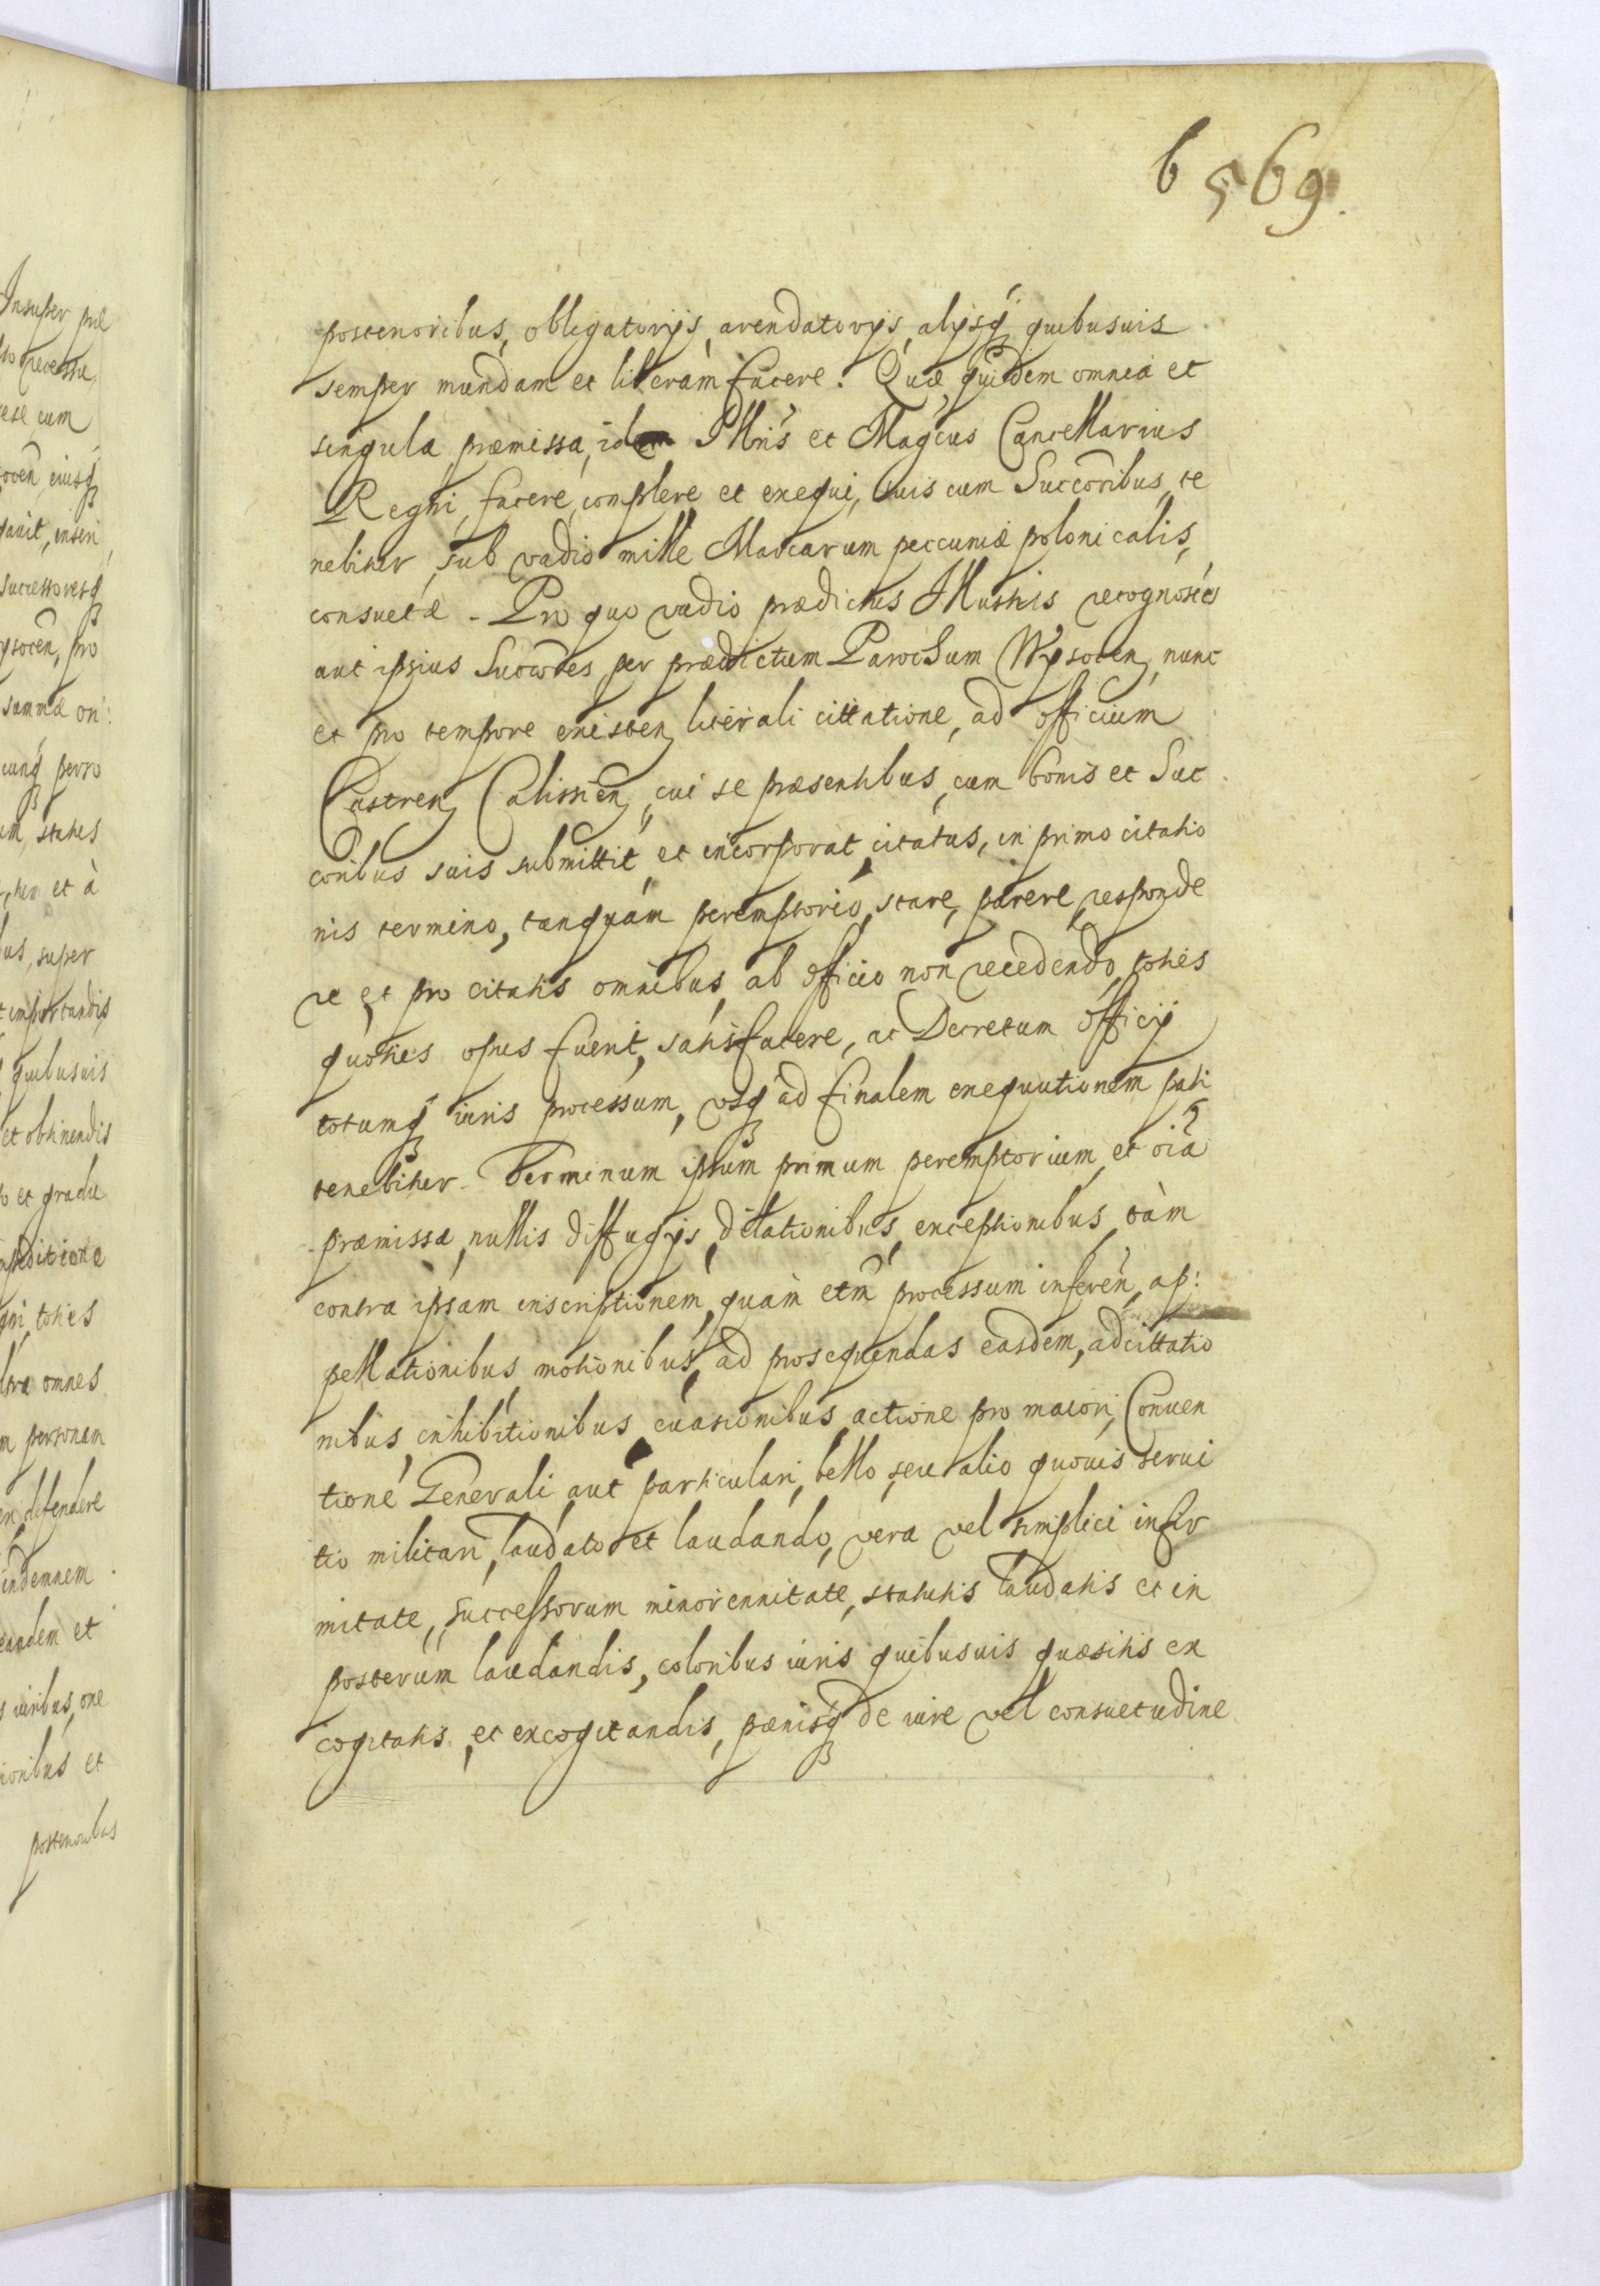 Insuper præ
recessu
sese cum
eiusq
inseri
successoresq
pro
summæ on:
cunq porro
status
et à
super
importandis
quibusuis
et obtinendis
et gradu
toties
omnes
personam
defendere
indemnem
eandem et
iuribus, one
et
posterioribus
6 569.
posterioribus, obligatorijs, arendatorijs, alijsq quibusuis
semper mundam et liberam facere. Quæ quidem omnia et
singula præmissa, idem Illris et Magcus Cancellarius
Regni, facere, complere et exequi, suis cum Succoribus, te
nebitur, sub vadio mille Marcarum peccuniæ polonicalis,
consuetæ. Pro quo vadio prædictus Illustris recognoscens
aut ipsius Succores, per prædictum Parochum Wysocen, nunc
et pro tempore existen, literali cittatione, ad officium
Castren Calissien, cui se præsentibus, cum bonis et Suc
coribus suis submittit et incorporat, citatus, in primo citatio
nis termino, tanquam peremptorio, stare, parere, responde
re et pro citatis omnibus, ab officio non recedendo, toties
quoties opus fuerit, satisfacere, ac Decretum officij
totumq iuris processum, usq ad finalem exequutionem pati
tenebitur. Terminum ipsum primum peremptorium et oia
præmissa, nullis diffugijs, dilationibus, exceptionibus, tàm
contra ipsam inscriptionem, quàm etm processum inferen, ap:
pellationibus, motionibus, ad prosequendas easdem, adcittatio
nibus, inhibitionibus, euasionibus, actione pro maiori, Conuen
tione Generali aut particulari, bello, seu alio quouis serui
tio militari, laudato et laudando, vera vel simplici infir
mitate, successorum minorennitate, statutis laudatis et in
posterum laudandis, coloribus iuris quibusuis quæsitis ex
cogitatis, et excogitandis, pænisq de iure vel consuetudine